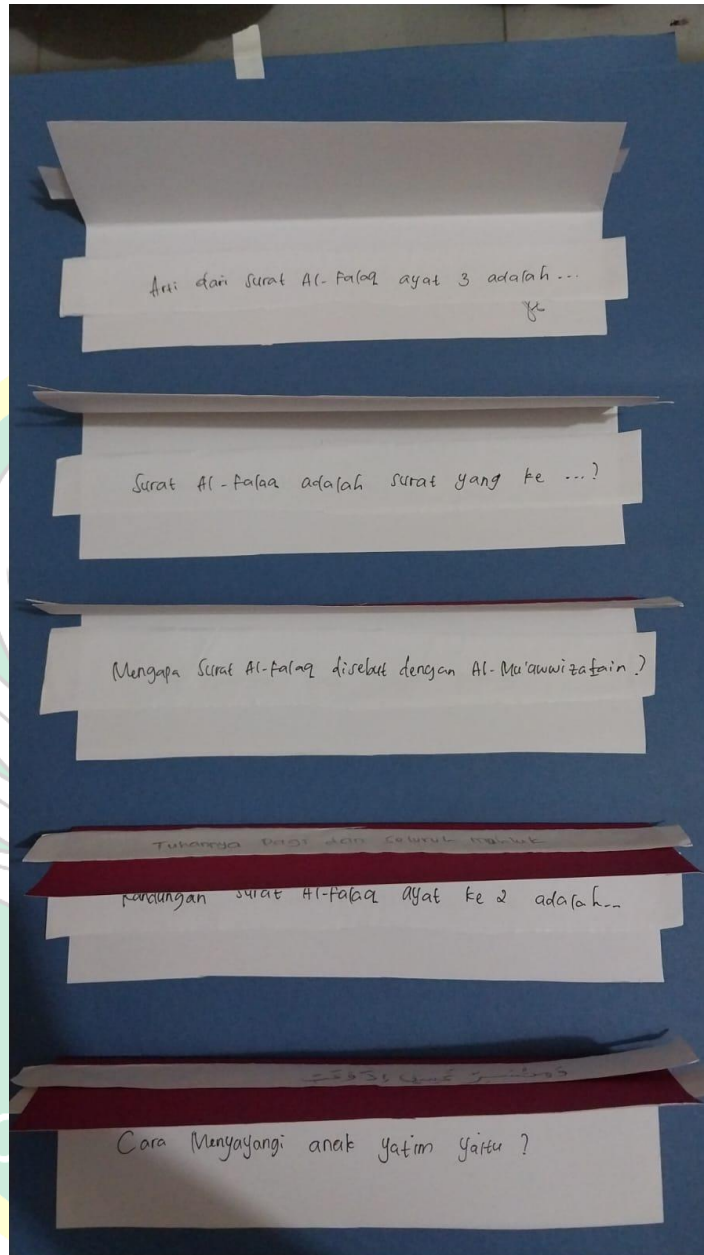 Arti dari Surat Al-Falaq ayat 3 adalah ...
Surat Al-Falaq adalah surat yang ke ...?
Mengapa Surat Al-Falaq disebut dengan Al-Mu'awwizatain ?
Tuhannya Pagi dan seluruh makhluk
Kandungan surat Al-Falaq ayat ke 2 adalah...
Cara Menyayangi anak yatim yaitu ?